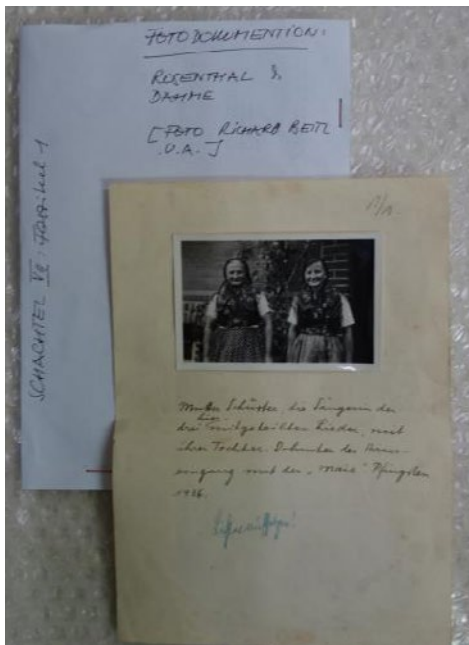 FOTODOKUMENTION:
ROSENTHAL &
DAHME
[FOTO RICHARD BEITL
U.A.]
SCHACHTEL VII: Faszikel 1
Mutter Schuster, die Sängerin der
drei hier mitgeteilten Lieder, mit
ihrer Tochter. Dahinter der Haus-
eingang mit der "Maie" Pfingsten
1936.